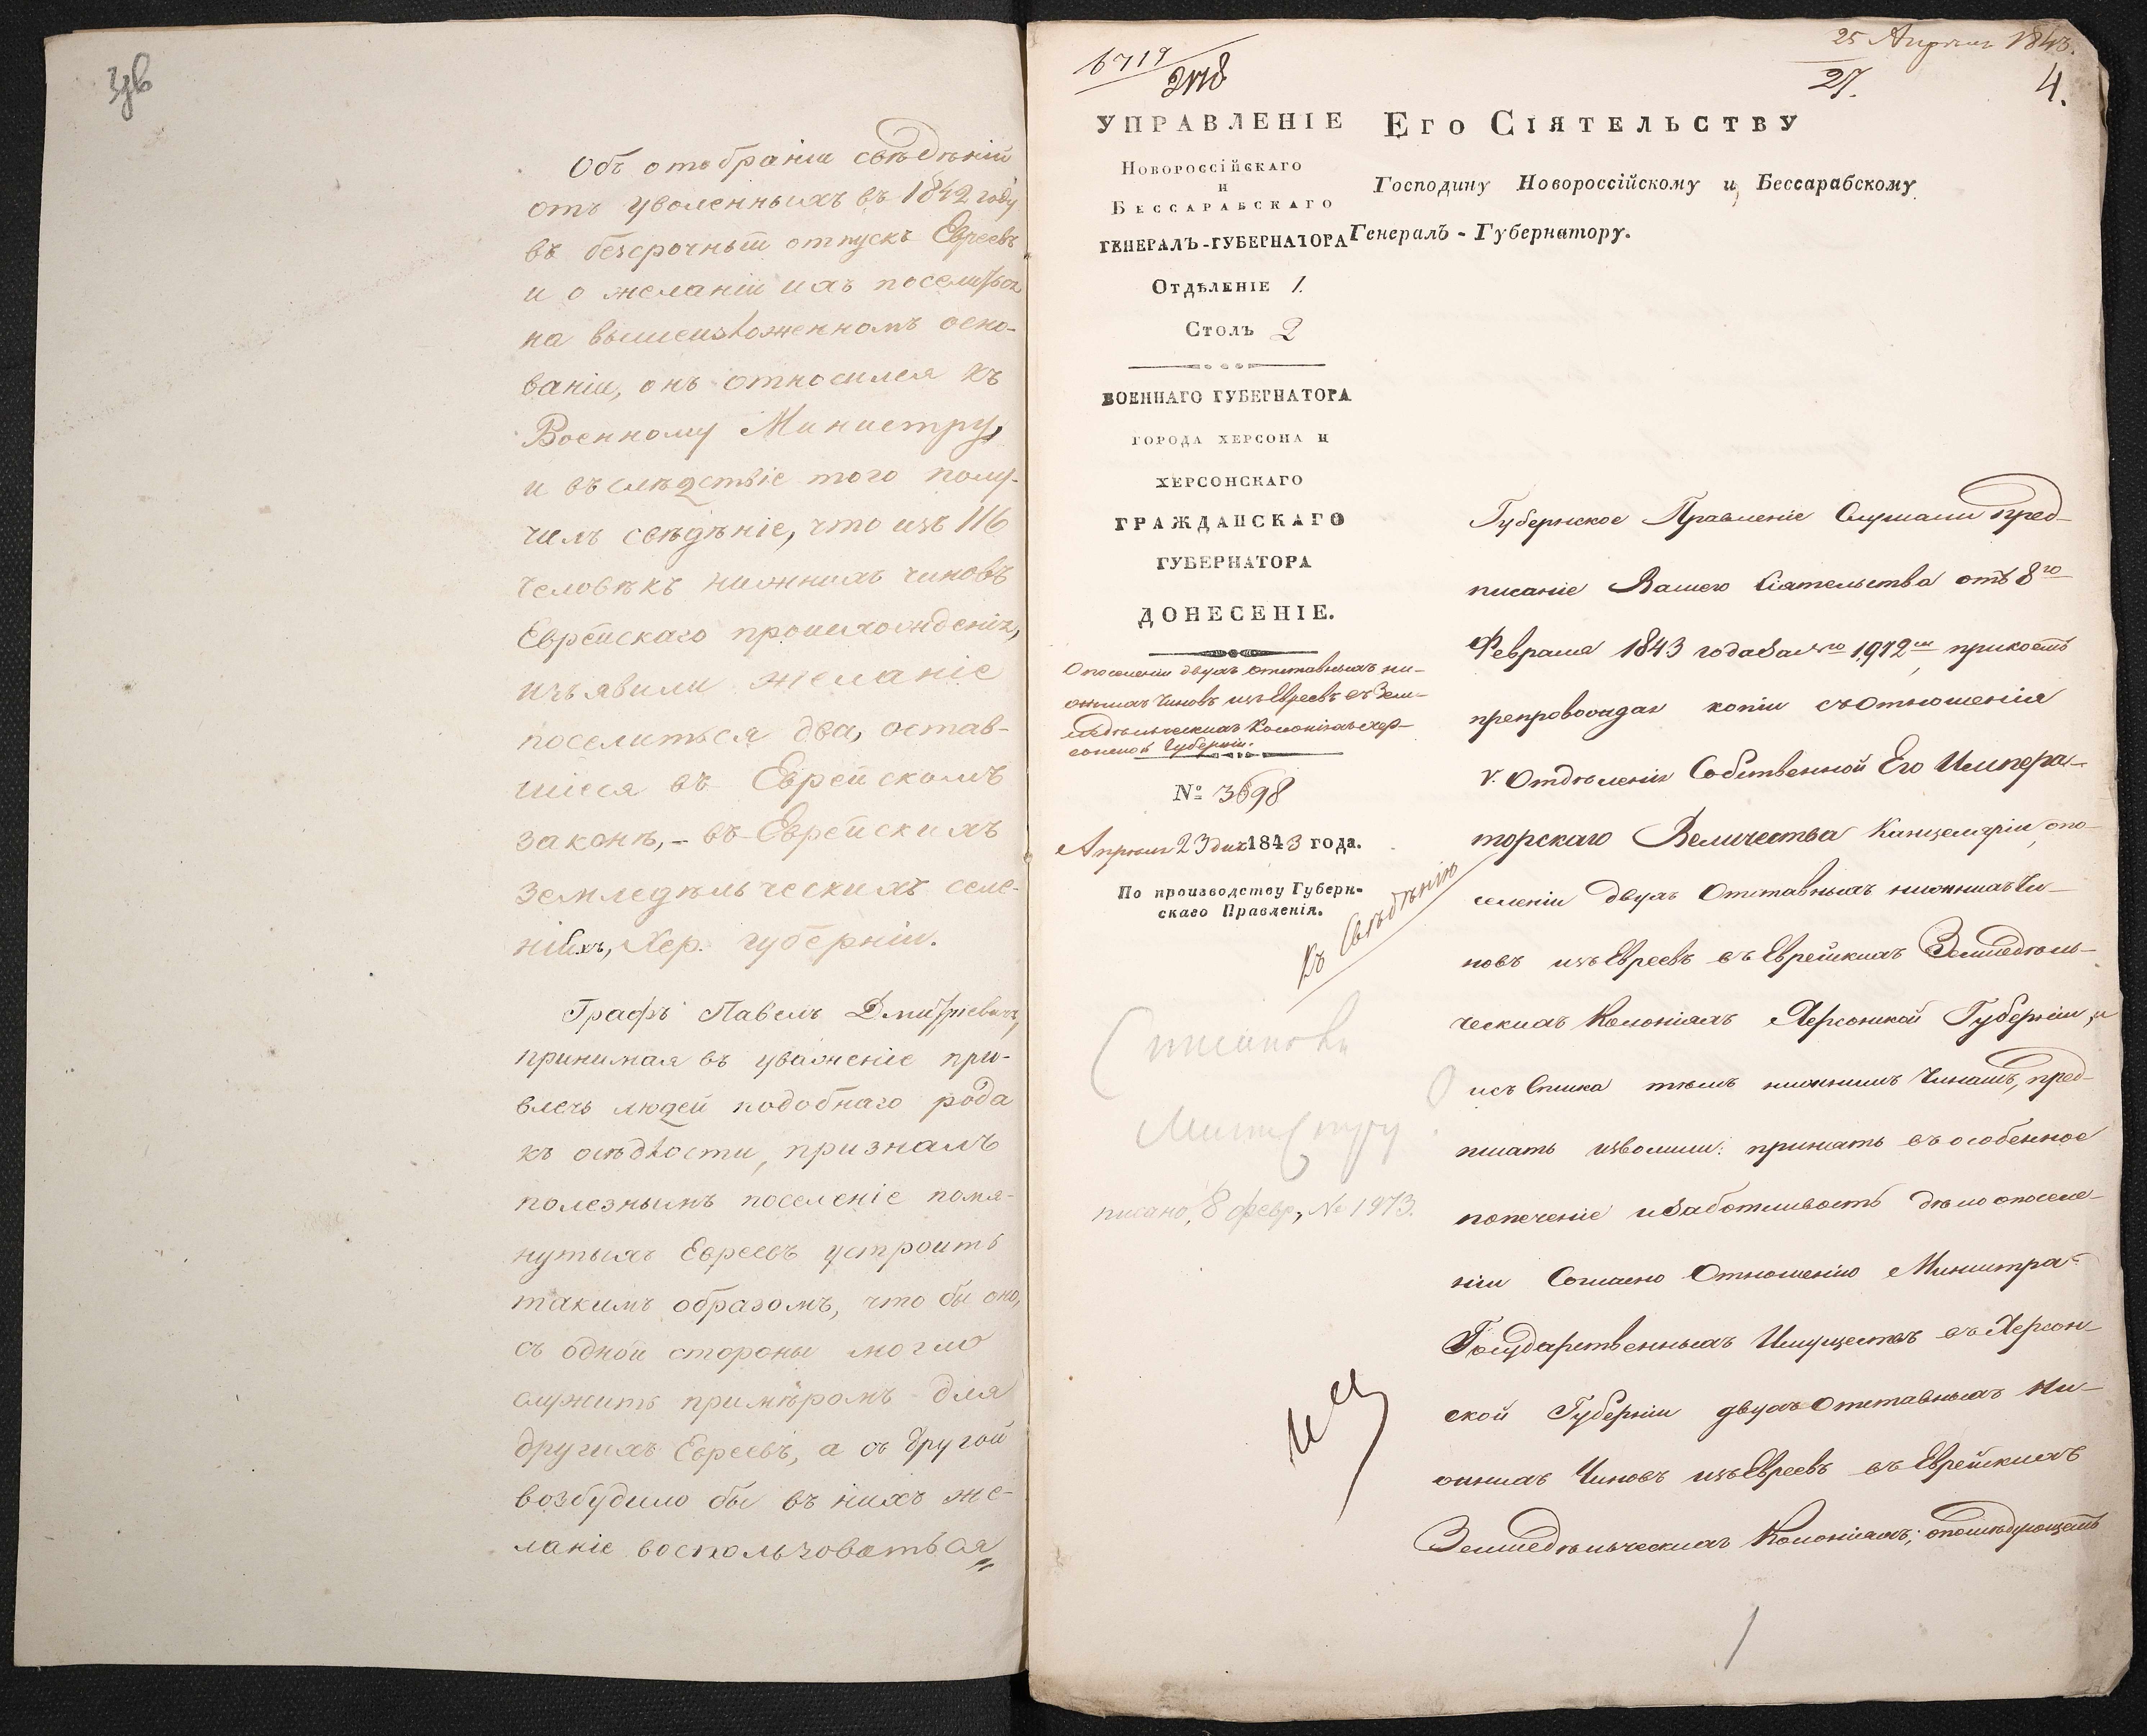 3об
Объ отобраніи свѣдѣній
отъ уволенныхъ въ 1842 году
въ безсрочный отпускъ Евреевъ
и о желаніи ихъ поселиться
на вышеизложенномъ осно-
ваніи, онъ относился къ
Военному Министру,
и въ слѣдствіе того полу-
чилъ свѣдѣніе, что изъ 116
человѣкъ нижнихъ чиновъ
Еврейскаго происхожденія,
изъявили желаніе
поселиться два, остав-
шіеся въ Еврейскомъ
законѣ, – въ Еврейскихъ
земледѣльческихъ селе-
ніяхъ, Хер. губерніи.
Графъ Павелъ Дмитріевичъ,
принимая въ уваженіе при-
влечь людей подобнаго рода
къ осѣдлости, призналъ
полезнымъ поселеніе помя-
нутыхъ Евреевъ устроить
такимъ образомъ, что бы оно,
съ одной стороны могло
служить примѣромъ для
другихъ Евреевъ, а съ другой
возбудило бы въ нихъ же-
ланіе воспользоваться
6719
25 Апрѣля 1843.
27.
4.
УПРАВЛЕНІЕ
НОВОРОССІЙСКАГО
И
БЕССАРАБСКАГО
ГЕНЕРАЛЪ-ГУБЕРНАТОРА
ОТДѢЛЕНІЕ 1.
СТОЛЪ 2
ВОЕННАГО ГУБЕРНАТОРА
ГОРОДА ХЕРСОНА И
ХЕРСОНСКАГО
ГРАЖДАНСКАГО
ГУБЕРНАТОРА
ДОНЕСЕНІЕ.
О поселеніи двухъ отставныхъ ни-
жнихъ Чиновъ изъ Евреевъ въ Земл-
едѣльческихъ Колоніяхъ Хер-
сонской Губерніи.
№ 3698
Апрѣля 23 дня 1843 года.
По производству Губерн-
скаго Правленія.
Къ Свѣдѣнію
Министру
писано, 8 февр., № 1973.
ЕГО СІЯТЕЛЬСТВУ
Господину Новороссійскому и Бессарабскому
Генералъ-Губернатору.
Губернское Правленіе Слушали пред-
писаніе Вашего Сіятельства отъ 8го
Февраля 1843 года за №о 1972мъ, при коемъ
препровождая копіи съ отношенія
V. Отдѣленія Собственной Его Импера-
торскаго Величества Канцеляріи, о по-
селеніи двухъ Отставныхъ нижнихъ Чи-
новъ изъ Евреевъ въ Еврейскихъ Земледѣль-
ческихъ Колоніяхъ Херсонской Губерніи, и
и съ Списка тѣмъ нижнимъ Чинамъ, пред-
писать изволили: принять въ особенное
попеченіе и заботливость дѣло о поселе-
ніи Согласно Отношенію Министра
Государственныхъ Имуществъ въ Херсон-
ской Губерніи двухъ Отставныхъ Ни-
жнихъ Чиновъ изъ Евреевъ въ Еврейскихъ
Земледѣльческихъ Колоніяхъ; о послѣдующемъ